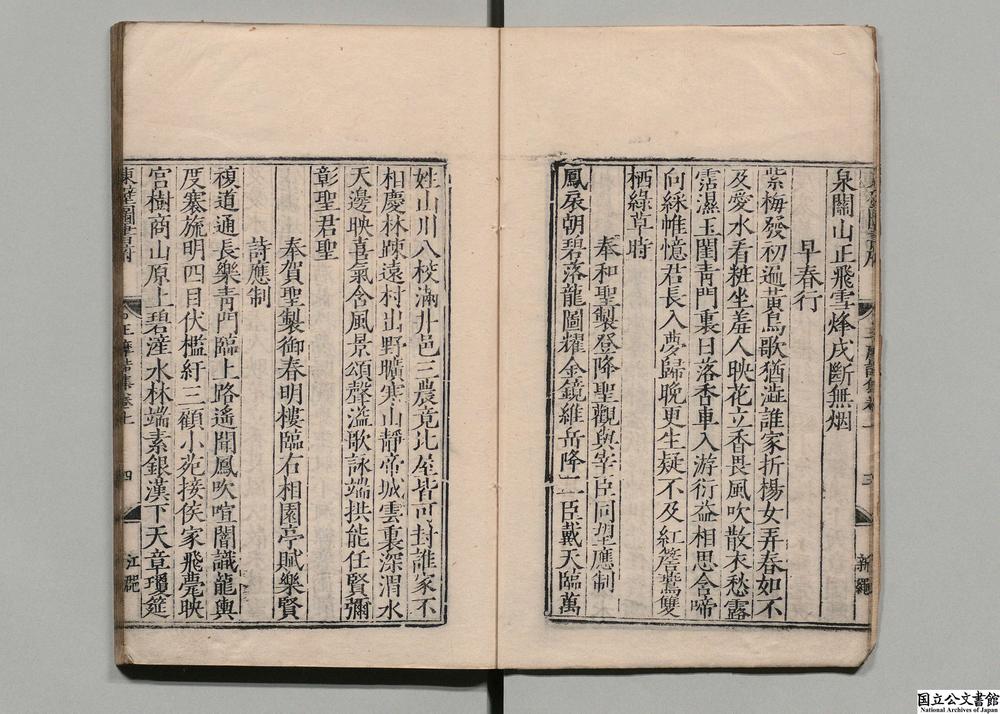 泉關山正飛雪烽戍斷無烟
早春行
紫梅發初遍黃鳥歌猶澁誰家折楊女弄春如不
及愛水看粧坐羞人映花立香畏風吹散衣愁露
霑濕玉閨青門裏日落香車入游衍益相思含啼
向綵帷憶君長入夢歸晚更生疑不及紅簷鷰雙
栖綠草時
奉和聖製登降聖觀與宰臣同望應制
鳳扆朝碧落龍圖耀金鏡維岳降二臣戴天臨萬
姓山川八校滿井邑三農竟比屋皆可封誰家不
相慶林疎遠村出野曠寒山靜帝城雲裏深渭水
天邊映喜氣含風景頌聲溢歌詠端拱能任賢彌
彰聖君聖
奉賀聖製御春明樓臨右相園亭賦樂賢
詩應制
複道通長樂青門臨上路遙聞鳳吹喧闇識龍輿
度寨旒明四目伏檻紆三顧小苑接侯家飛甍映
宮樹商山原上碧滻水林端素銀漢下天章瓊筵
東壁圖書府
王摩詰集卷上
四
江
三
新
国立公文書館
National Archives of Japan